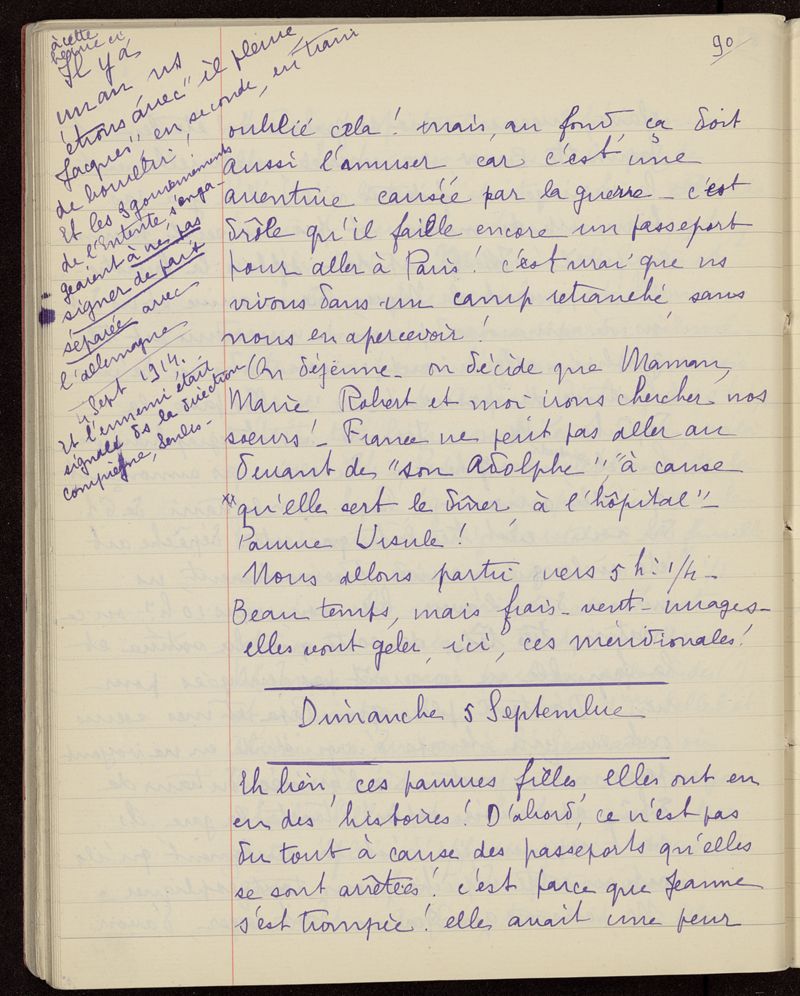 90
à cette
heure ci
Il y a
un an ns
étions avec "il pleine
Jacques", en seconde, en train
de
Et les 3 gouvernements
de l'Entente, s'enga-
geaient à ne pas
signer de paix
séparée avec
l'allemagne
4 Sept 1914.
Et l'ennemi était
signalé ds la direction
compiègne, Senlis -
oublié cela! mais, au fond, ça doit
aussi l'amuser car c'est une
aventure causée par la guerre - c'est
drôle qu'il faille encore un passeport
pour aller à Paris! c'est vrai que ns
vivons dans un camp retranché, sans
nous en apercevoir!
On déjeune - on décide que Maman,
Marie Robert et moi irons chercher nos
soeurs! - France ne peut pas aller au
devant de "son Adolphe", "à cause
qu'elle sert le dîner, à l'hôpital" -
Pauvre Ursule!
Nous allons partir vers 5 h: 1/4 -
Beau temps, mais frais - vent - nuages -
elles vont geler, ici, ces méridionales!
Dimanche 5 Septembre
Eh bien, ces pauvres filles, elles ont en
en des histoires! D'abord, ce n'est pas
du tout à cause des passeports qu'elles
se sont arrêtées! c'est parce que Jeanne
s'est trompée! elle avait une peur